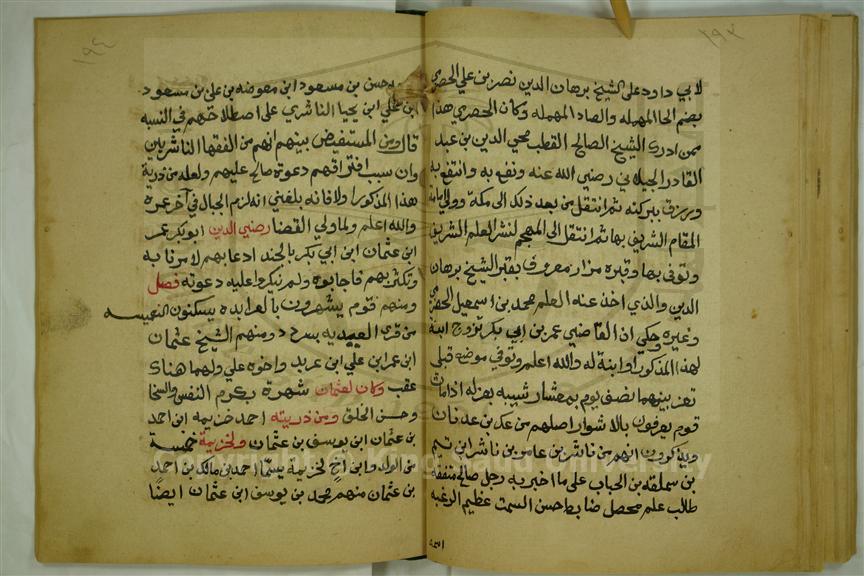 ١٩٣
لابي داود على الشيخ برهان الدين نصر بن علي الحصري
بضم الحا المهمله والصاد المهمله وكان الحصري هذا
ممن ادرك الشيخ الصالح القطب محي الدين بن عبد
القادر الجيلاني رضي الله عنه ونفع به وانتفع به
ورزق ببركته ثم انتقل من بعد ذلك الى مكة وولي امامة
المقام الشريف بها ثم انتقل الى المهجم لنشر العلم الشريف
وتوفى بها وقبره مزار معروف بقبر الشيخ برهان
الدين والذي اخذ عنه العلم محمد بن اسمعيل الحضرمي
وغيره وحكي ان القاضي عمر بن ابي بكر تزوج ابنة
لهذا المذكور او ابنة له والله اعلم وتوفي موضعه قبلي
تعز بينهما نصف يوم
قوم يعرفون بالاشوار اصلهم من عك بن عدنان
ويذكرون انهم من ناشر بن عامر بن ناشر ابن تيم
بن سملقه بن الحباب على ما اخبر به رجل صالح متفقه
طالب علم محصل ضابط حسن السمت عظيم الرغبه
١٩٤
حسن بن مسعود ابن معوضه بن علي بن مسعود
ابن علي ابن يحيا الناشري على اصطلاحهم في النسبه
قال ومن المستفيض بينهم انهم من الفقها الناشريين
وان سبب افتراقهم دعوة صالح عليهم ولعله من ذرية
هذا المذكور اولا فانه بلغني انه لزم الجبال في آخر عمره
والله اعلم ولما ولي القضا رضي الدين ابو بكر عمر
ابن عثمان ابن ابي بكر بالجند ادعا بهم لامرنا به
وتكثر بهم فاجابوه ولم ينكروا عليه دعوته فصل
ومنهم قوم يشهرون بالعرابده يسكنون
من قرى العبيديه بسردد ومنهم الشيخ عثمان
ابن عمر ابن علي ابن عربد واخوه علي ولهما هناك
عقب وكان لعثمان شهرة بكرم النفس والسخا
وحسن الخلق ومن ذريته احمد خزيمه ابن احمد
بن عثمان ابن يوسف بن عثمان ولخزيمة خمسة
من اولاد وابن أخ لخزيمة يسمّا احمد بن مالك بن احمد
بن عثمان منهم محمد بن يوسف ابن عثمان ايضا
Copyright © King Saud University